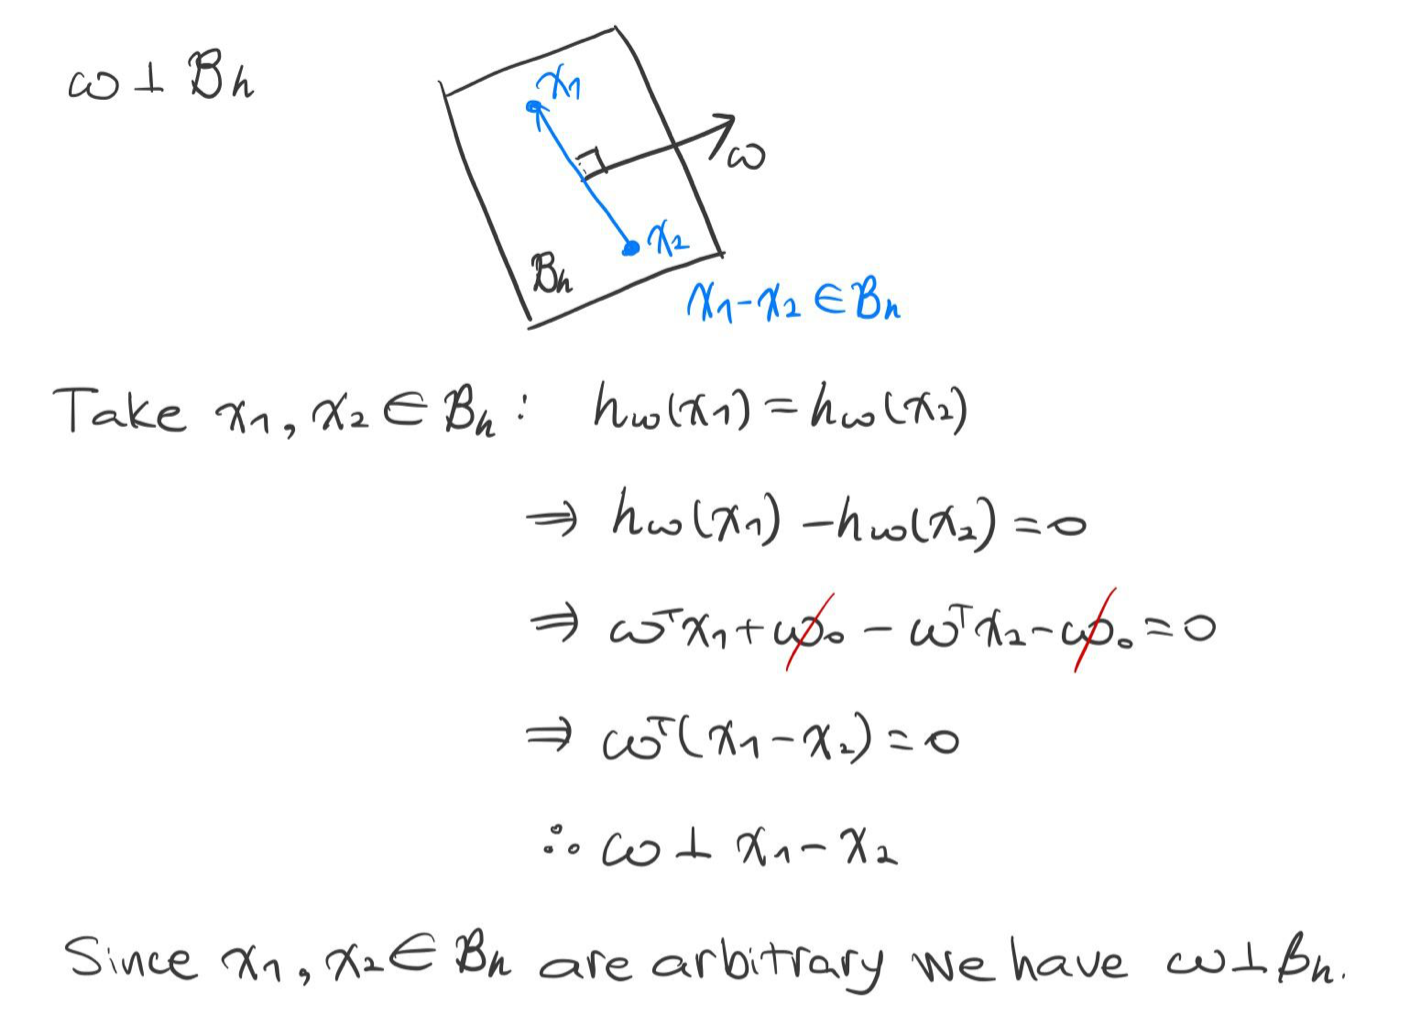 ω ⊥ Bh
x1
ω
x2
Bh
x1-x2 ∈ Bh
Take x1, x2 ∈ Bh : hω(x1) = hω(x2)
⇒ hω(x1) - hω(x2) = 0
⇒ ωᵀx1 + ω0 - ωᵀx2 - ω0 = 0
⇒ ωᵀ(x1 - x2) = 0
∴ ω ⊥ x1 - x2
Since x1, x2 ∈ Bh are arbitrary we have ω ⊥ Bh.